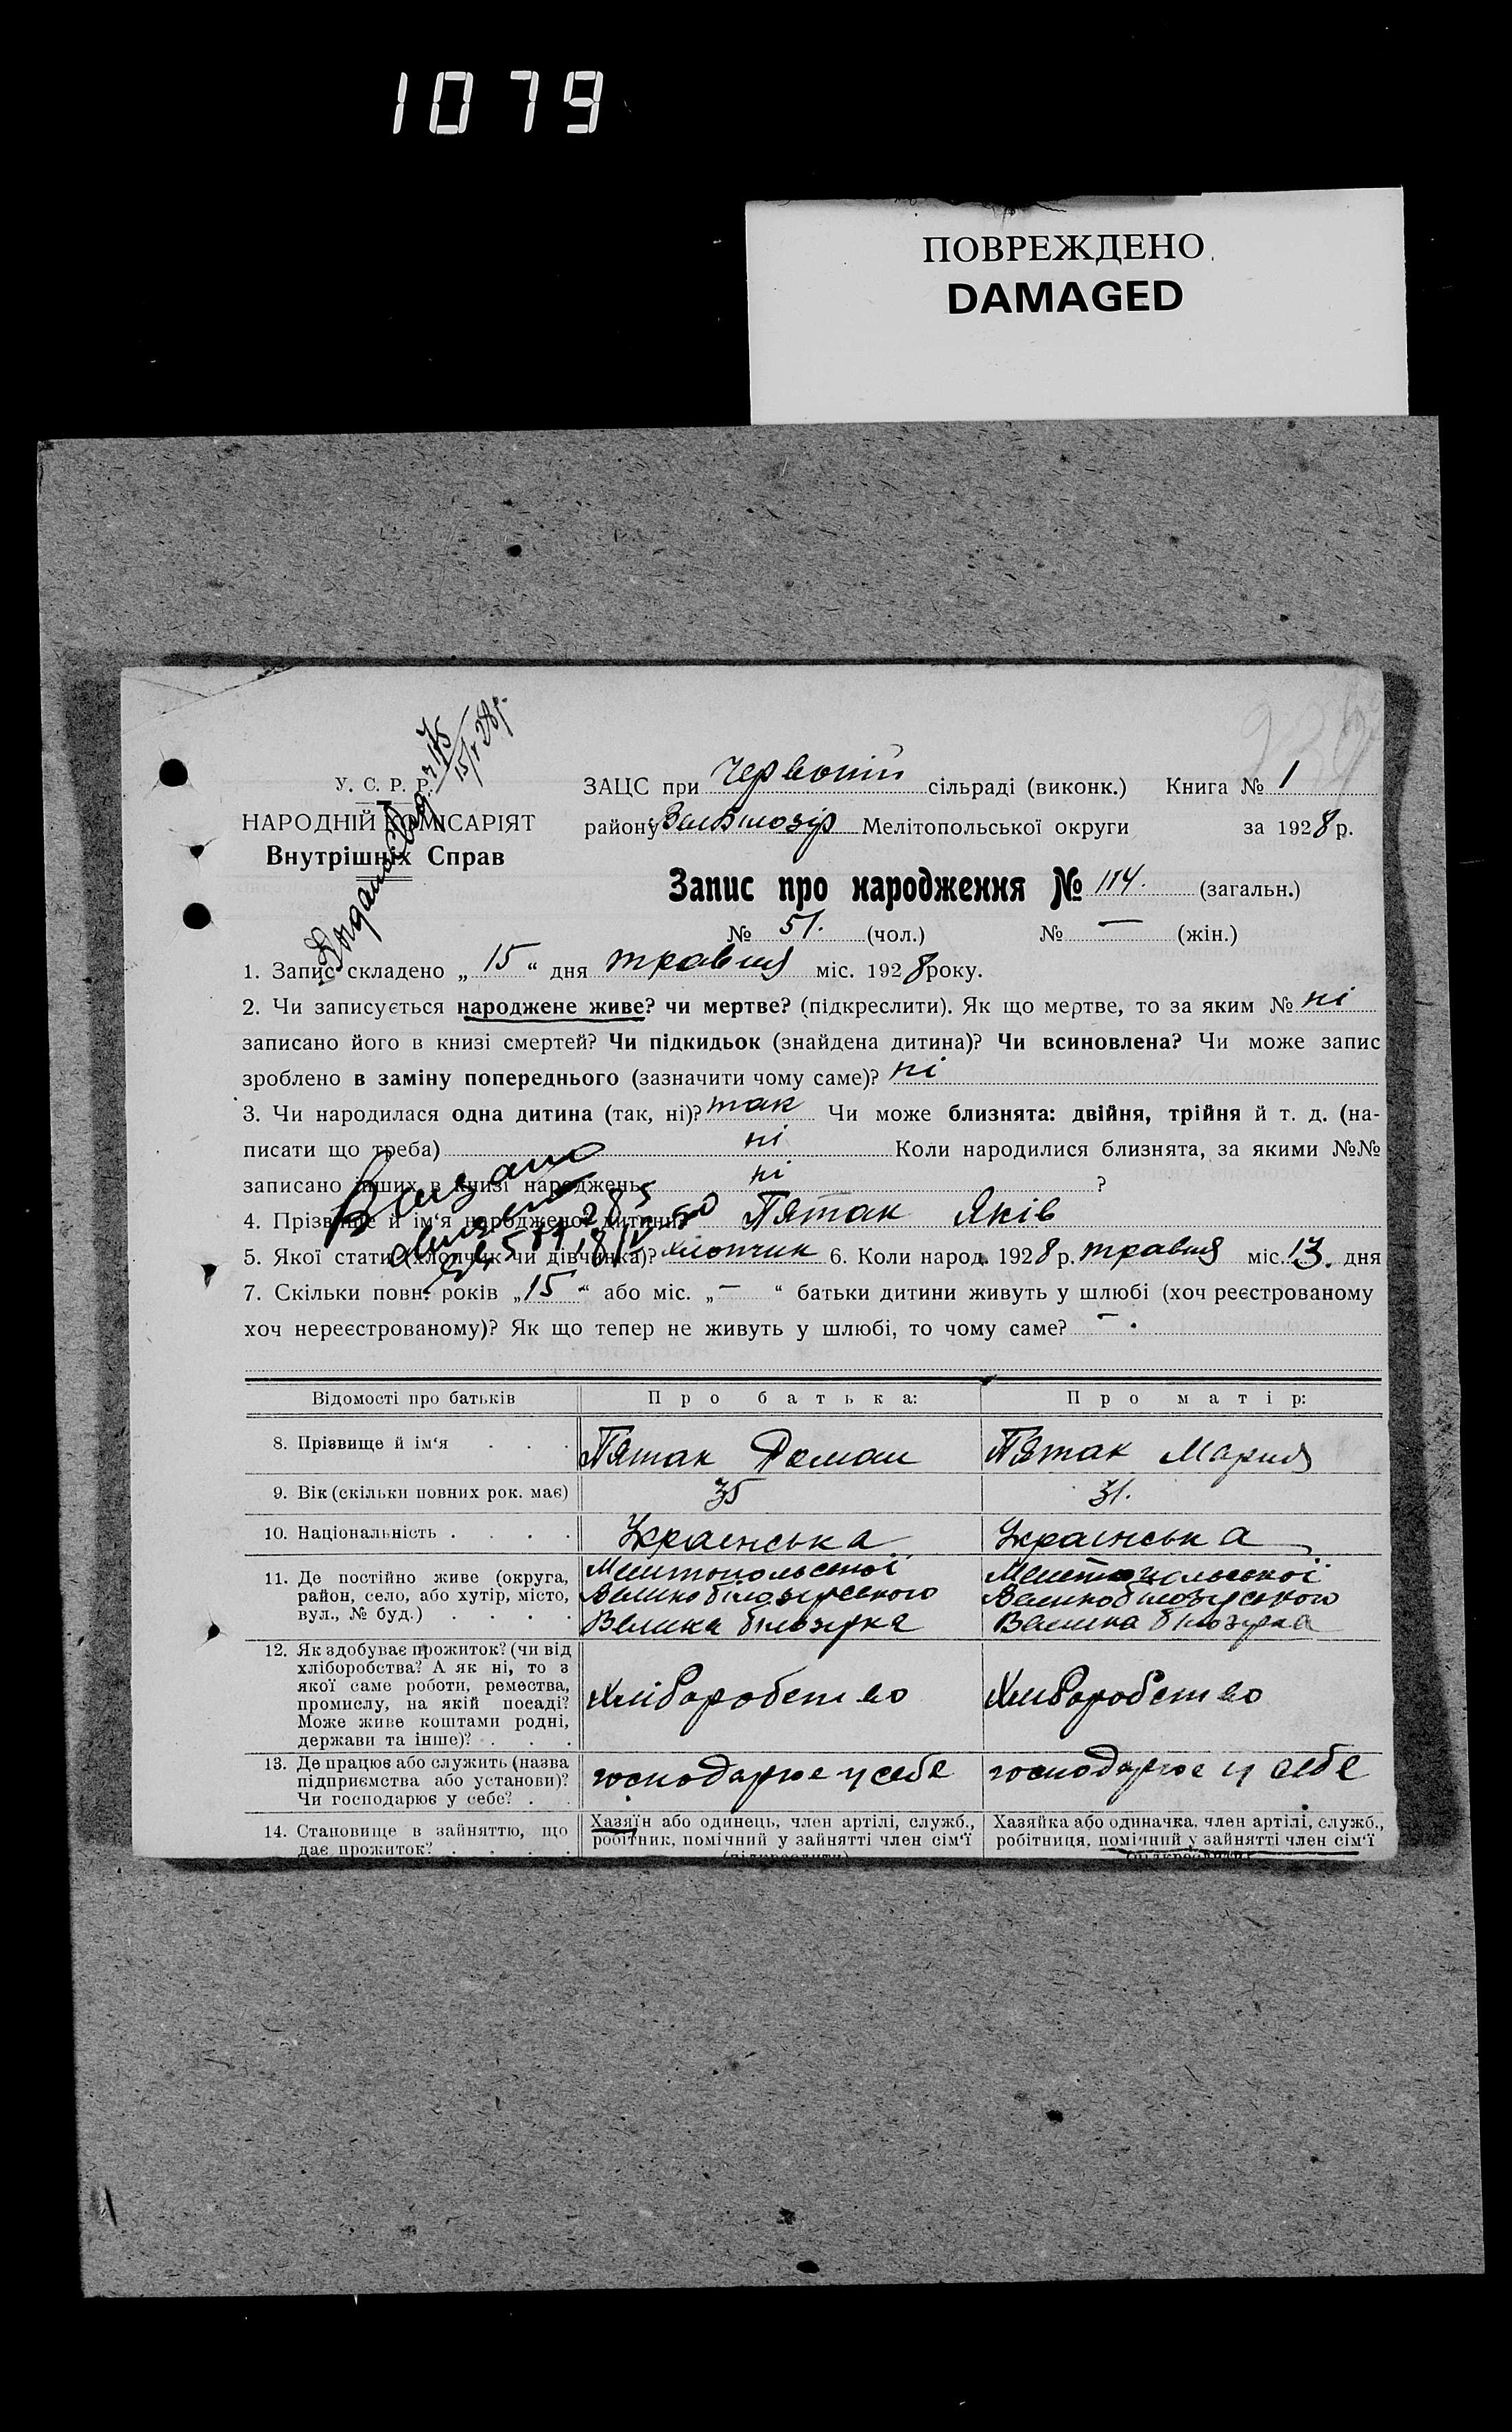 1079
ПОВРЕЖДЕНО
DAMAGED
У. С. Р. Р.
НАРОДНІЙ КОМІСАРІЯТ
Внутрішніх Справ
15/V 28 р.
ЗАЦС при Червоній сільраді (виконк.) Книга № 1
району Мелітопольської округи за 1928 р.
Запис про народження № 114. (загальн.)
№ 51. (чол.) № — (жін.)
1. Запис складено „15“ дня травня міс. 1928 року.
2. Чи записується народжене живе? чи мертве? (підкреслити). Як що мертве, то за яким № ні
записано його в книзі смертей? Чи підкидьок (знайдена дитина)? Чи всиновлена? Чи може запис
зроблено в заміну попереднього (зазначити чому саме)? ні
3. Чи народилася одна дитина (так, ні)? так Чи може близнята: двійня, трійня й т. д. (на-
писати що треба) ні Коли народилися близнята, за якими №№
записано інших в книзі народжень ні ?
4. Прізвище й ім‘я народженої дитини? Пятак Яків
5. Якої стати (хлопчик чи дівчинка)? хлопчик 6. Коли народ. 1928 р. травня міс. 13. дня
7. Скільки повн. років „15“ або міс. „—“ батьки дитини живуть у шлюбі (хоч реєстрованому
хоч нереєстрованому)? Як що тепер не живуть у шлюбі, то чому саме? — .
Відомості про батьків Про батька: Про матір:
8. Прізвище й ім‘я . . . Пятак Роман Пятак Мария
9. Вік (скільки повних рок. має) 35 31.
10. Національність . . . . Українська Українська
11. Де постійно живе (округа,
район, село, або хутір, місто,
вул., № буд.) . . . .
Мелитопольської
Великобілозерського
Велика білозерка
Мелитопольської
Великобілозерського
Велика білозерка
12. Як здобуває прожиток? (чи від
хліборобства? А як ні, то з
якої саме роботи, ремества,
промислу, на якій посаді?
Може живе коштами родні,
держави та інше)? . . .
Хліборобство Хліборобство
13. Де працює або служить (назва
підприємства або установи)?
Чи господарює у себе? . .
господарює у себе господарює у себе
14. Становище в зайняттю, що
дає прожиток? . . . .
Хазяїн або одинець, член артілі, служб.,
робітник, помічний у зайнятті член сім‘ї
(підкреслити)
Хазяйка або одиначка, член артілі, служб.,
робітниця, помічний у зайнятті член сім‘ї
(підкреслити)